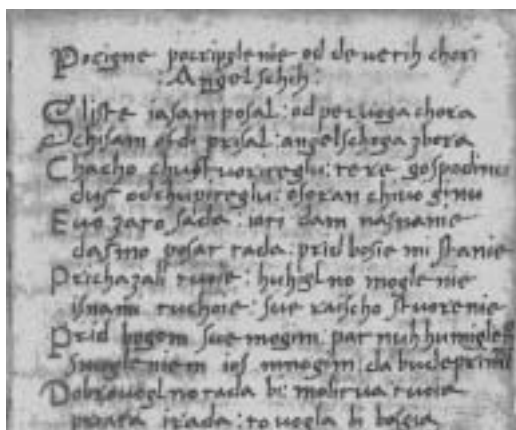 Pocigne pocripglenie od deuetih chori
: Angelschih :
Sliste ia sam posal : od peruoga chora
Schisam ofdi prisal : angelschoga zbora
Chacho chuo stuoriteglu : te re gospodinu
dus odchupiteglu : osoran chiuo ginu
Euo zato sada : iori dam nasname
dasmo posat rada : prid bosie mi stanie
Prichazali tuoie : huhiglno moglenie
isnami tuchoie : sue raischo stuorenie
Prid bogom sue mogim : put nuh humiglen
smogleniem ios mnogim : da bude primi
Dobrouoglno tada bi : molitua tuoia
prada : to uogla bi bosia